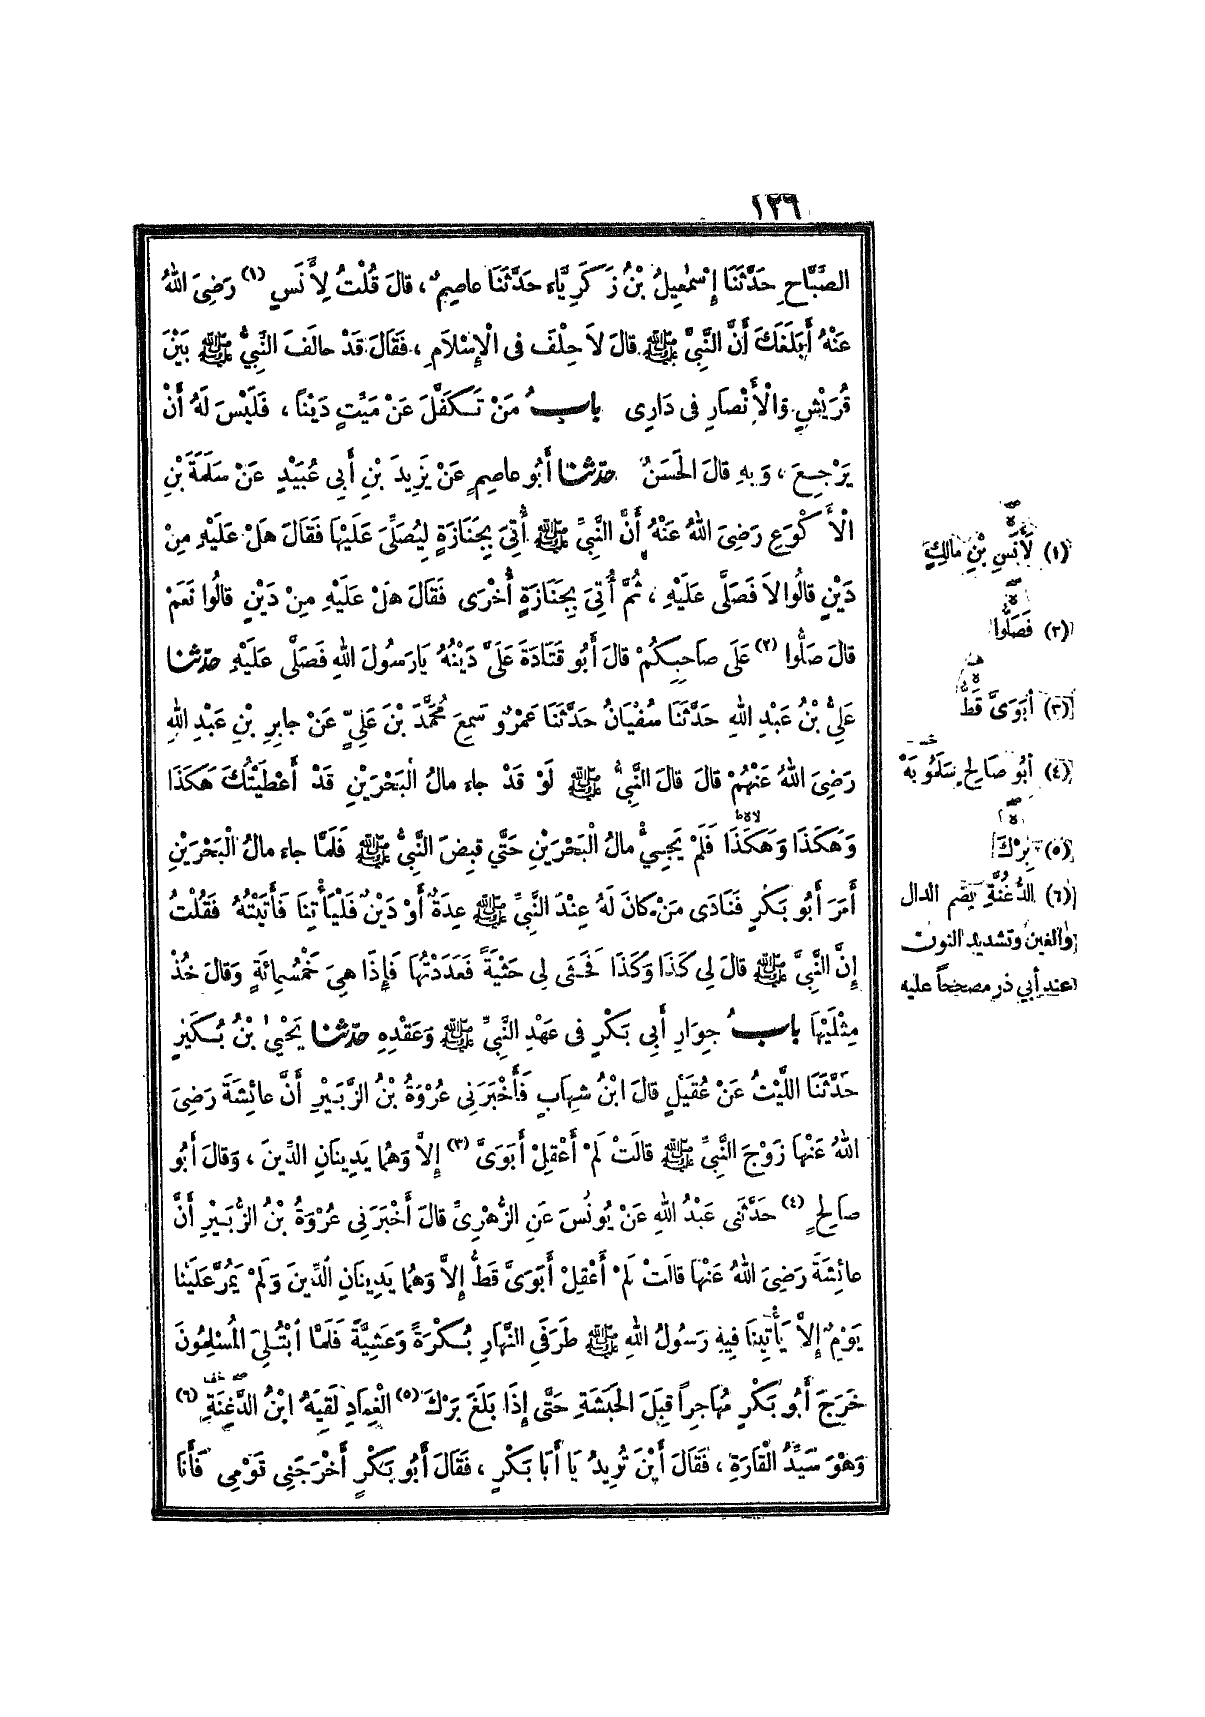 ١٢٦
الصَّبَّاحِ حَدَّثَنَا إِسْمٰعِيلُ بْنُ زَكَرِيَّاء حَدَّثَنَا عاصِمٌ ، قالَ قُلْتُ لِأَنَسٍ (١) رَضِىَ اللهُ
عَنْهُ أَبَلَغَكَ أَنَّ النَّبِيَّ ﷺ قالَ لاَ حِلْفَ فِى الْإِسْلاَمِ ، فَقَالَ قَدْ حالَفَ النَّبِيُّ ﷺ بَيْنَ
قُرَيْشٍ وَالْأَنْصَارِ فِى دَارِى بابُ مَنْ تَكَفَّلَ عَنْ مَيِّتٍ دَيْناً ، فَلَيْسَ لَهُ أَنْ
يَرْجِعَ ، وَبِهِ قالَ الْحَسَنُ حدّثنا أَبُو عاصِمٍ عَنْ يَزِيدَ بْنِ أَبِى عُبَيْدٍ عَنْ سَلَمَةَ بْنِ
الْأَكْوَعِ رَضِىَ اللهُ عَنْهُ أَنَّ النَّبِيَّ ﷺ أُتِىَ بِجَنَازَةٍ لِيُصَلِّىَ عَلَيْهَا فَقَالَ هَلْ عَلَيْهِ مِنْ
دَيْنٍ قالُوا لاَ فَصَلَّى عَلَيْهِ ، ثُمَّ أُتِىَ بِجَنَازَةٍ أُخْرَى فَقَالَ هَلْ عَلَيْهِ مِنْ دَيْنٍ قالُوا نَعَمْ
قالَ صَلُّوا (٢) عَلَى صَاحِبِكُمْ قالَ أَبُو قَتَادَةَ عَلَىَّ دَيْنُهُ يَا رَسُولَ اللهِ فَصَلَّى عَلَيْهِ حدّثنا
عَلِىُّ بْنُ عَبْدِ اللهِ حَدَّثَنَا سُفْيَانُ حَدَّثَنَا عَمْرٌو سَمِعَ مُحَمَّدَ بْنَ عَلِيٍّ عَنْ جابِرِ بْنِ عَبْدِ اللهِ
رَضِىَ اللهُ عَنْهُمْ قالَ قالَ النَّبِيُّ ﷺ لَوْ قَدْ جاءَ مالُ الْبَحْرَيْنِ قَدْ أَعْطَيْتُكَ هَكَذَا
وَهَكَذَا وَهَكَذَا فَلَمْ يَجِئْ مالُ الْبَحْرَيْنِ حَتَّى قُبِضَ النَّبِيُّ ﷺ فَلَمَّا جاءَ مالُ الْبَحْرَيْنِ
أَمَرَ أَبُو بَكْرٍ فَنَادَى مَنْ كانَ لَهُ عِنْدَ النَّبِيِّ ﷺ عِدَةٌ أَوْ دَيْنٌ فَلْيَأْتِنَا فَأَتَيْتُهُ فَقُلْتُ
إِنَّ النَّبِيَّ ﷺ قالَ لِى كَذَا وَكَذَا فَحَثَى لِى حَثْيَةً فَعَدَدْتُهَا فَإِذَا هِىَ خَمْسُمِائَةٍ وَقالَ خُذْ
مِثْلَيْهَا بابُ جِوَارِ أَبِى بَكْرٍ فِى عَهْدِ النَّبِيِّ ﷺ وَعَقْدِهِ حدّثنا يَحْيٰى بْنُ بُكَيْرٍ
حَدَّثَنَا اللَّيْثُ عَنْ عُقَيْلٍ قالَ ابْنُ شِهَابٍ فَأَخْبَرَنِى عُرْوَةُ بْنُ الزُّبَيْرِ أَنَّ عائِشَةَ رَضِىَ
اللهُ عَنْهَا زَوْجَ النَّبِيِّ ﷺ قالَتْ لَمْ أَعْقِلْ أَبَوَىَّ (٣) إِلاَّ وَهُمَا يَدِينَانِ الدِّينَ ، وَقالَ أَبُو
صَالِحٍ (٤) حَدَّثَنِى عَبْدُ اللهِ عَنْ يُونُسَ عَنِ الزُّهْرِىِّ قالَ أَخْبَرَنِى عُرْوَةُ بْنُ الزُّبَيْرِ أَنَّ
عائِشَةَ رَضِىَ اللهُ عَنْهَا قالَتْ لَمْ أَعْقِلْ أَبَوَىَّ قَطُّ إِلاَّ وَهُمَا يَدِينَانِ الدِّينَ وَلَمْ يَمُرَّ عَلَيْنَا
يَوْمٌ إِلاَّ يَأْتِينَا فِيهِ رَسُولُ اللهِ ﷺ طَرَفَىِ النَّهَارِ بُكْرَةً وَعَشِيَّةً فَلَمَّا ابْتُلِىَ الْمُسْلِمُونَ
خَرَجَ أَبُو بَكْرٍ مُهَاجِراً قِبَلَ الْحَبَشَةِ حَتَّى إِذَا بَلَغَ بَرْكَ (٥) الْغِمَادِ لَقِيَهُ ابْنُ الدَّغِنَةِ (٦)
وَهُوَ سَيِّدُ الْقَارَةِ ، فَقَالَ أَيْنَ تُرِيدُ يَا أَبَا بَكْرٍ ، فَقَالَ أَبُو بَكْرٍ أَخْرَجَنِى قَوْمِى فَأَنَا
(١) لِأَنَسِ بْنِ مَالِكٍ
(٢) فَصَلُّوا
(٣) أَبَوَىَّ قَطُّ
(٤) أَبُو صَالِحٍ سَلَمُويَهْ
(٥) بِرْكَ
(٦) الدُّغُنَّةِ بضم الدال
والغين وتشديد النون
عند أبي ذر مصححاً عليه